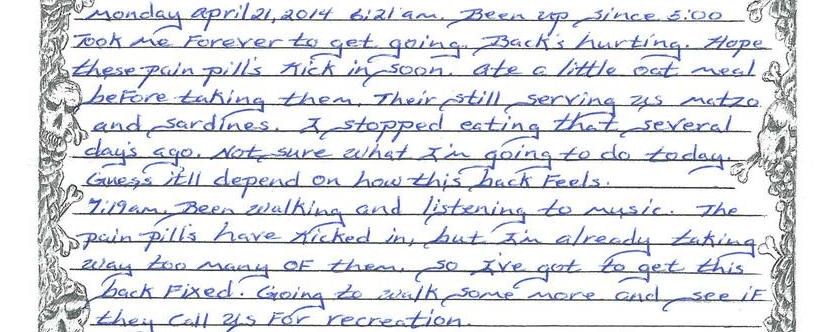 Monday April 21, 2014 6:21 am. Been up since 5:00
Took me Forever to get going. Back's hurting. Hope
these pain pill's Kick in soon. Ate a little oat meal
beFore taking them. Their still serving us matzo
and sardines. I stopped eating that several
day's ago. Not sure what I'm going to do today.
Guess it'll depend on how this back Feels.
7:19am. Been walking and listening to music. The
pain pill's have Kicked in, but I'm already taking
way too many OF them. So I've got to get this
back Fixed. Going to walk some more and see iF
they Call us For recreation.